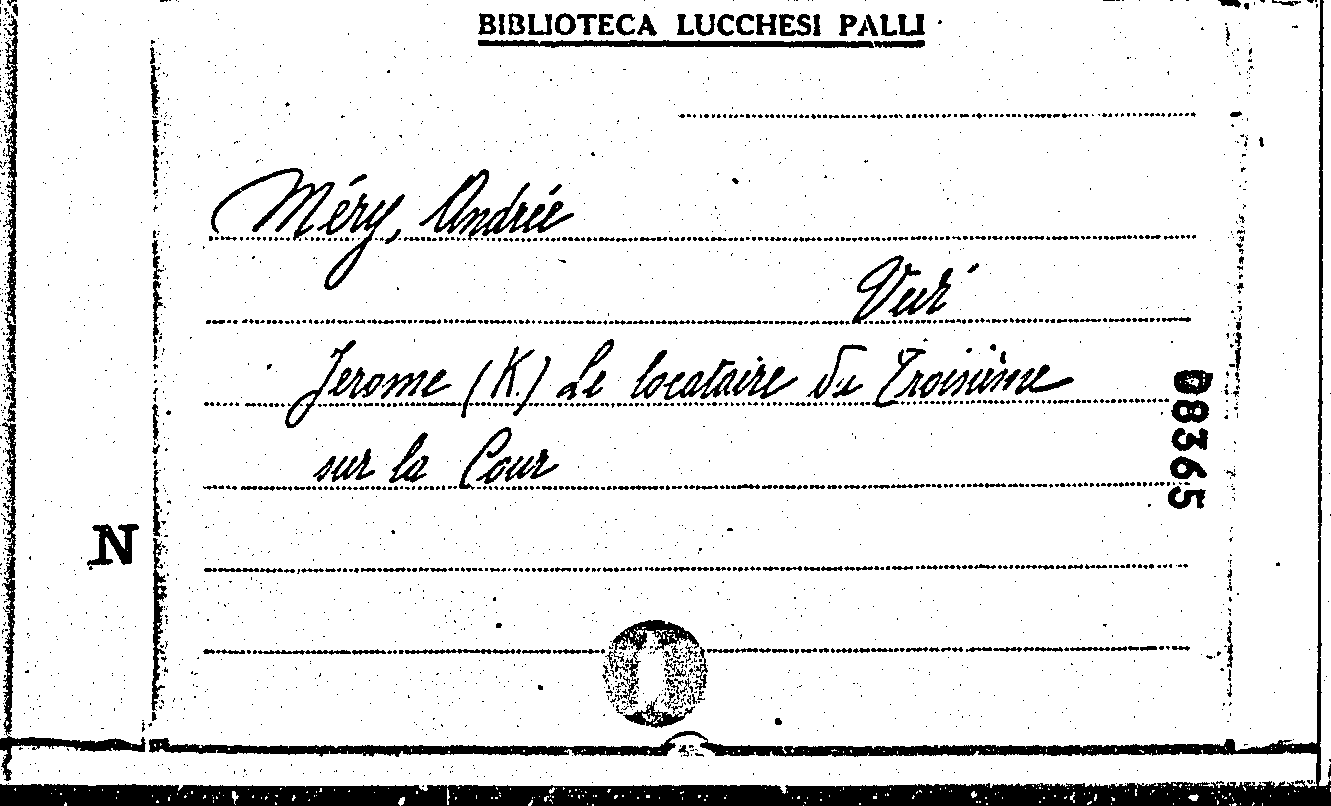 BIBLIOTECA LUCCHESI PALLI
Méry, Andrée
Jerome (K.) Le locataire du Troisième
sur la Cour
08365
N